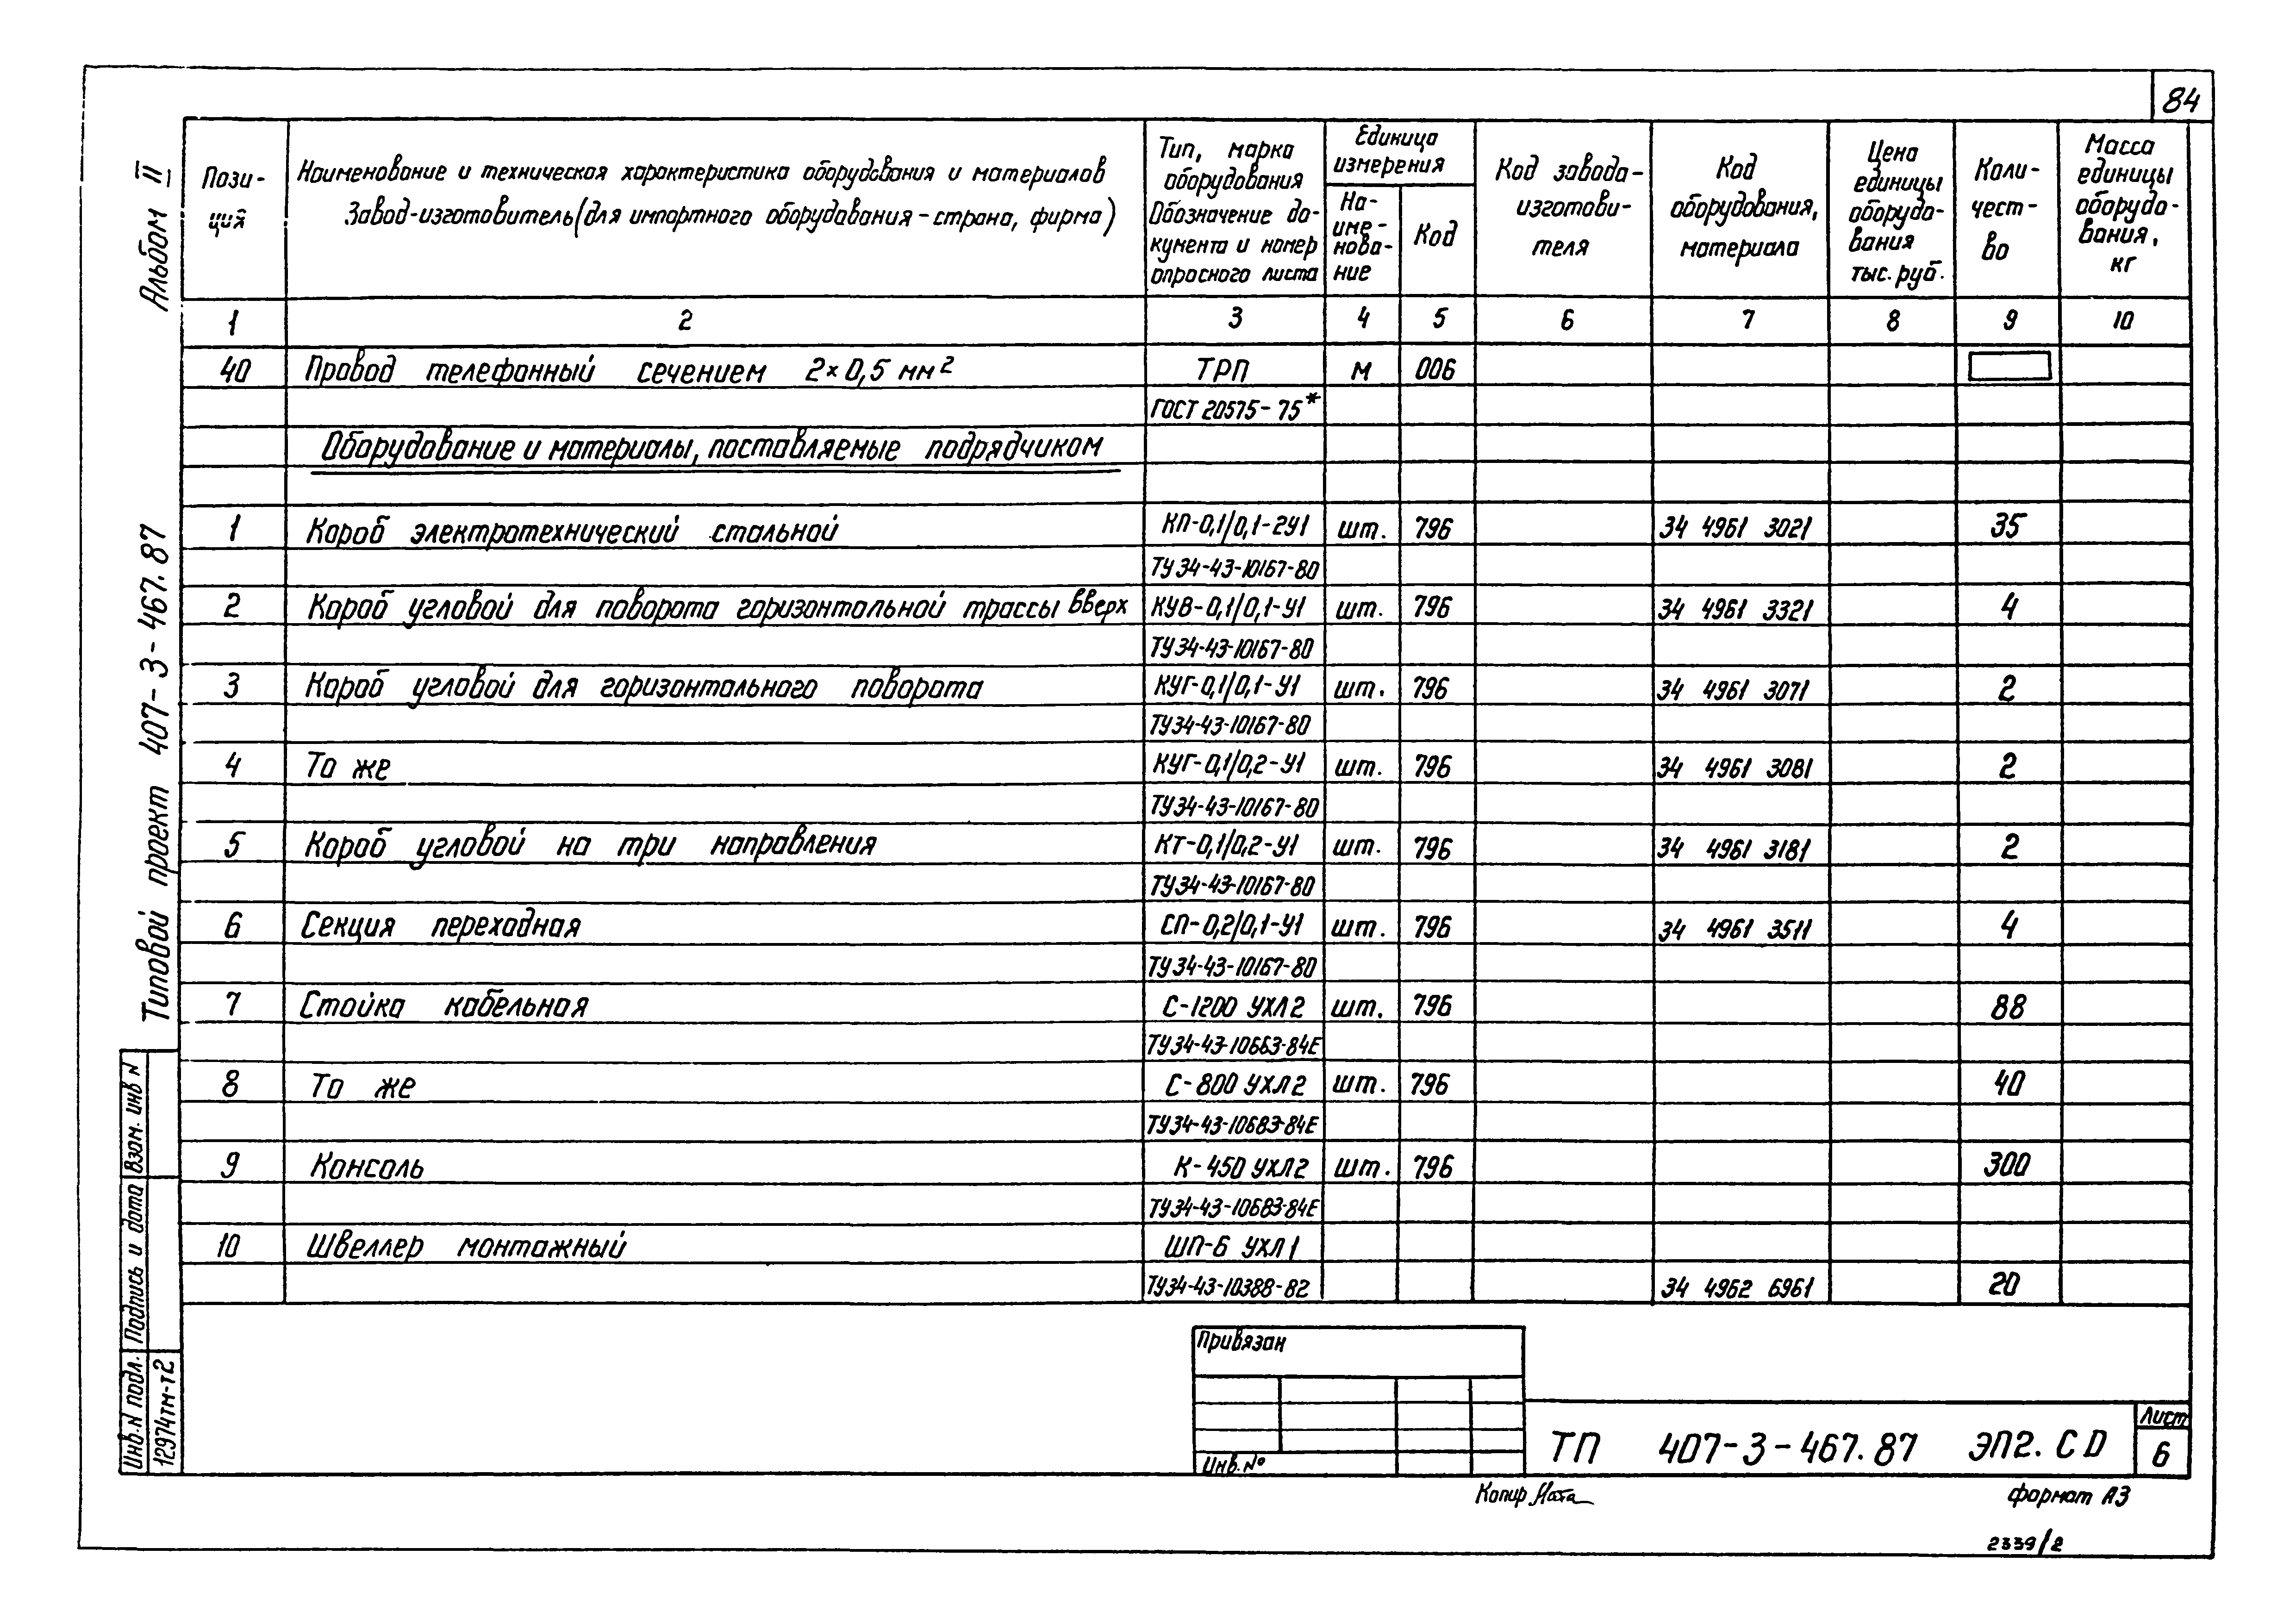 84
Альбом II
Типовой проект 407-3-467.87
Пози-
ция
Наименование и техническая характеристика оборудования и материалов
Завод-изготовитель (для импортного оборудования - страна, фирма)
Тип, марка
оборудования
Обозначение до-
кумента и номер
опросного листа
Единица
измерения
На-
име-
нова-
ние
Код
Код завода-
изготови-
теля
Код
оборудования,
материала
Цена
единицы
оборудо-
вания
тыс. руб.
Коли-
чест-
во
Масса
единицы
оборудо-
вания,
кг
1 2 3 4 5 6 7 8 9 10
40 Провод телефонный сечением 2×0,5 мм² ТРП м 006
ГОСТ 20575-75*
Оборудование и материалы, поставляемые подрядчиком
1 Короб электротехнический стальной КП-0,1/0,1-2У1 шт. 796 34 4961 3021 35
ТУ34-43-10167-80
2 Короб угловой для поворота горизонтальной трассы вверх КУВ-0,1/0,1-У1 шт. 796 34 4961 3321 4
ТУ34-43-10167-80
3 Короб угловой для горизонтального поворота КУГ-0,1/0,1-У1 шт. 796 34 4961 3071 2
ТУ34-43-10167-80
4 То же КУГ-0,1/0,2-У1 шт. 796 34 4961 3081 2
ТУ34-43-10167-80
5 Короб угловой на три направления КТ-0,1/0,2-У1 шт. 796 34 4961 3181 2
ТУ34-43-10167-80
6 Секция переходная СП-0,2/0,1-У1 шт. 796 34 4961 3511 4
ТУ34-43-10167-80
7 Стойка кабельная С-1200 УХЛ2 шт. 796 88
ТУ34-43-10663-84Е
8 То же С-800 УХЛ2 шт. 796 40
ТУ34-43-10683-84Е
9 Консоль К-450 УХЛ2 шт. 796 300
ТУ34-43-10683-84Е
10 Швеллер монтажный ШП-Б УХЛ1
ТУ34-43-10388-82 34 4962 6961 20
Взам. инв N
Подпись и дата
Инв. N подл.
12974тм-т2
Привязан
Инв. №
ТП 407-3-467.87 ЭП2.СD
Лист
6
Копир
формат А3
2339/2